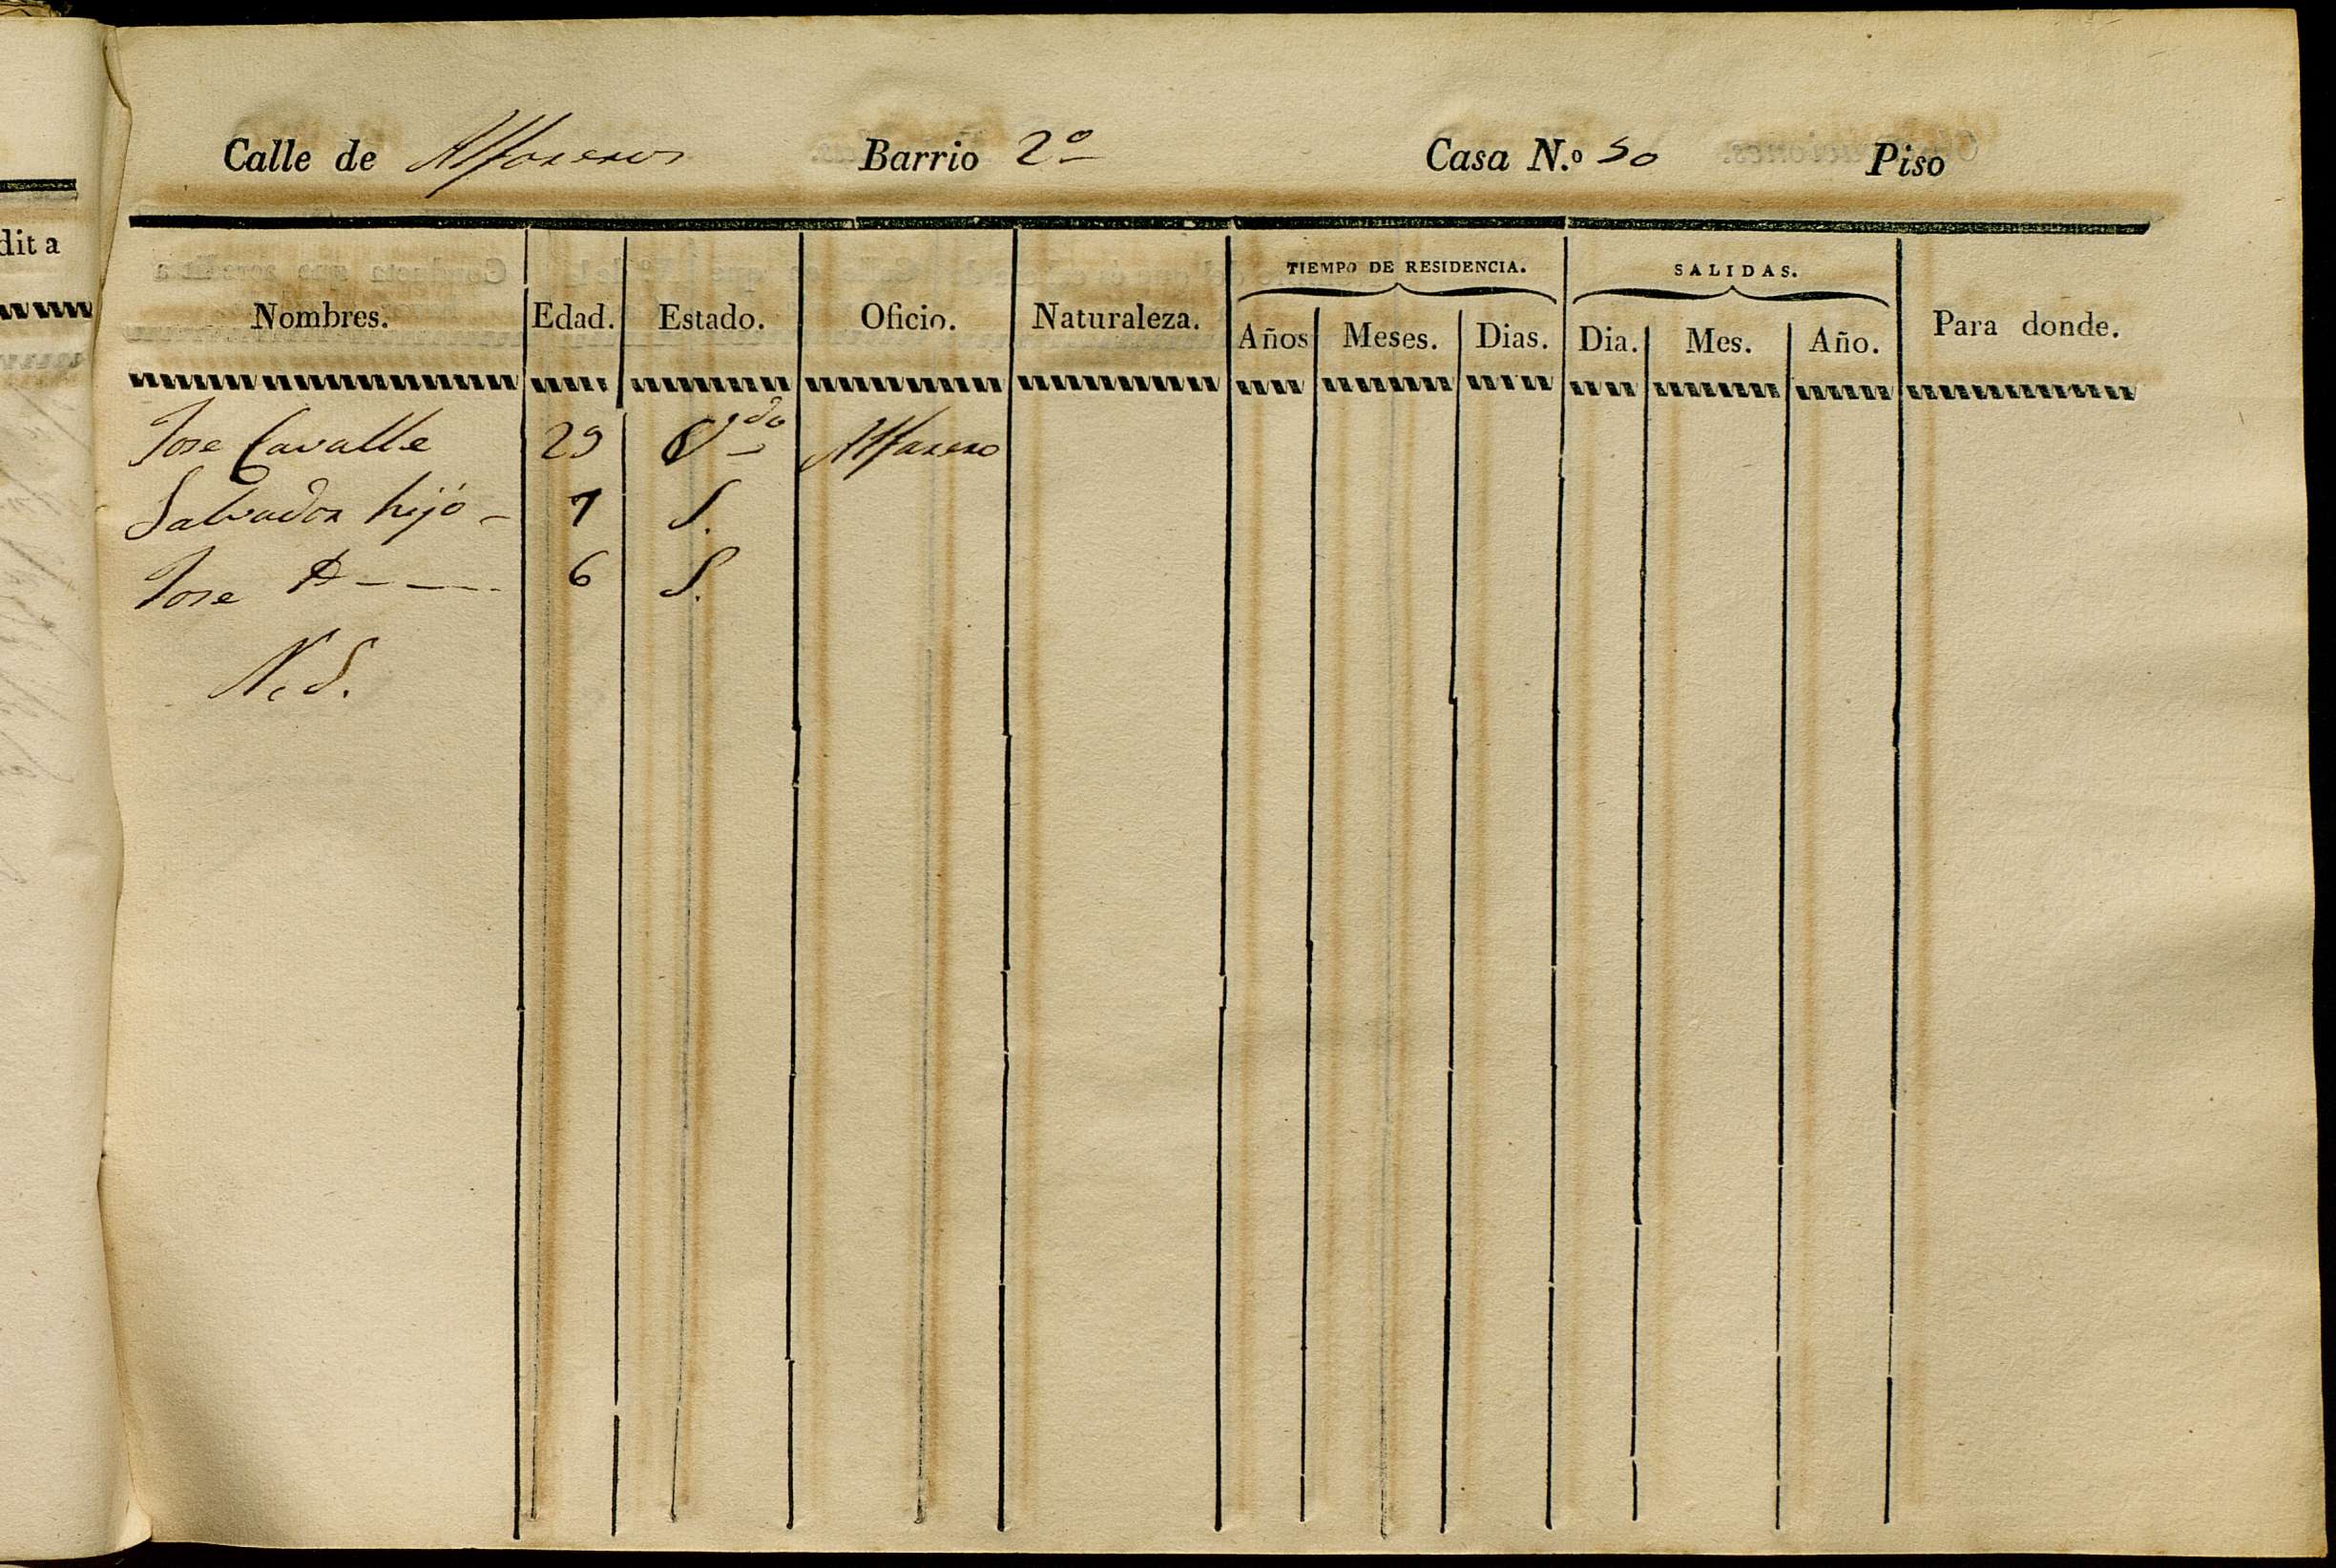 dit a
Calle de Alfareros Barrio 2º Casa N.º 50 Piso
TIEMPO DE RESIDENCIA. SALIDAS.
Nombres. Edad. Estado. Oficio. Naturaleza. Años Meses. Dias. Dia. Mes. Año. Para donde.
Jose Cavalle 29 V.do Alfarero
Salvador hijo 7 S.
Jose 6 S.
N. S.